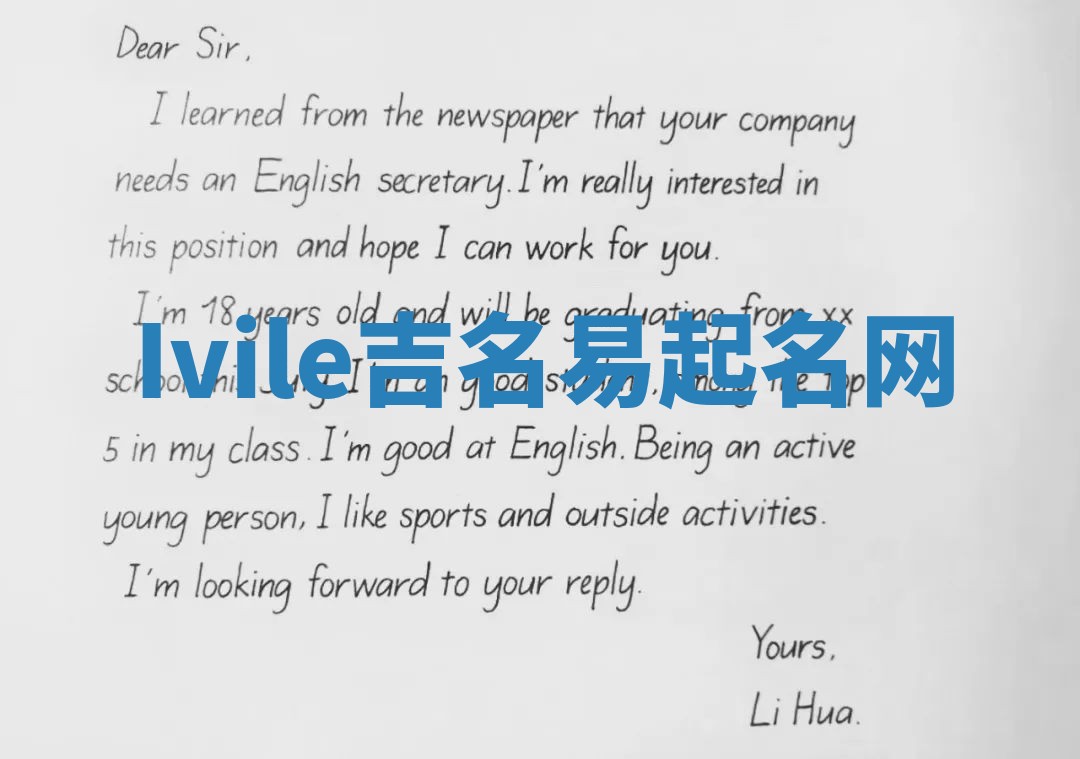 Dear Sir,
I learned from the newspaper that your company
needs an English secretary. I'm really interested in
this position and hope I can work for you.
I'm 18 years old and will be graduating from xx
Ivile吉名易起名网
school this July. I'm an good student, among the top
5 in my class. I'm good at English. Being an active
young person, I like sports and outside activities.
I'm looking forward to your reply.
Yours,
Li Hua.